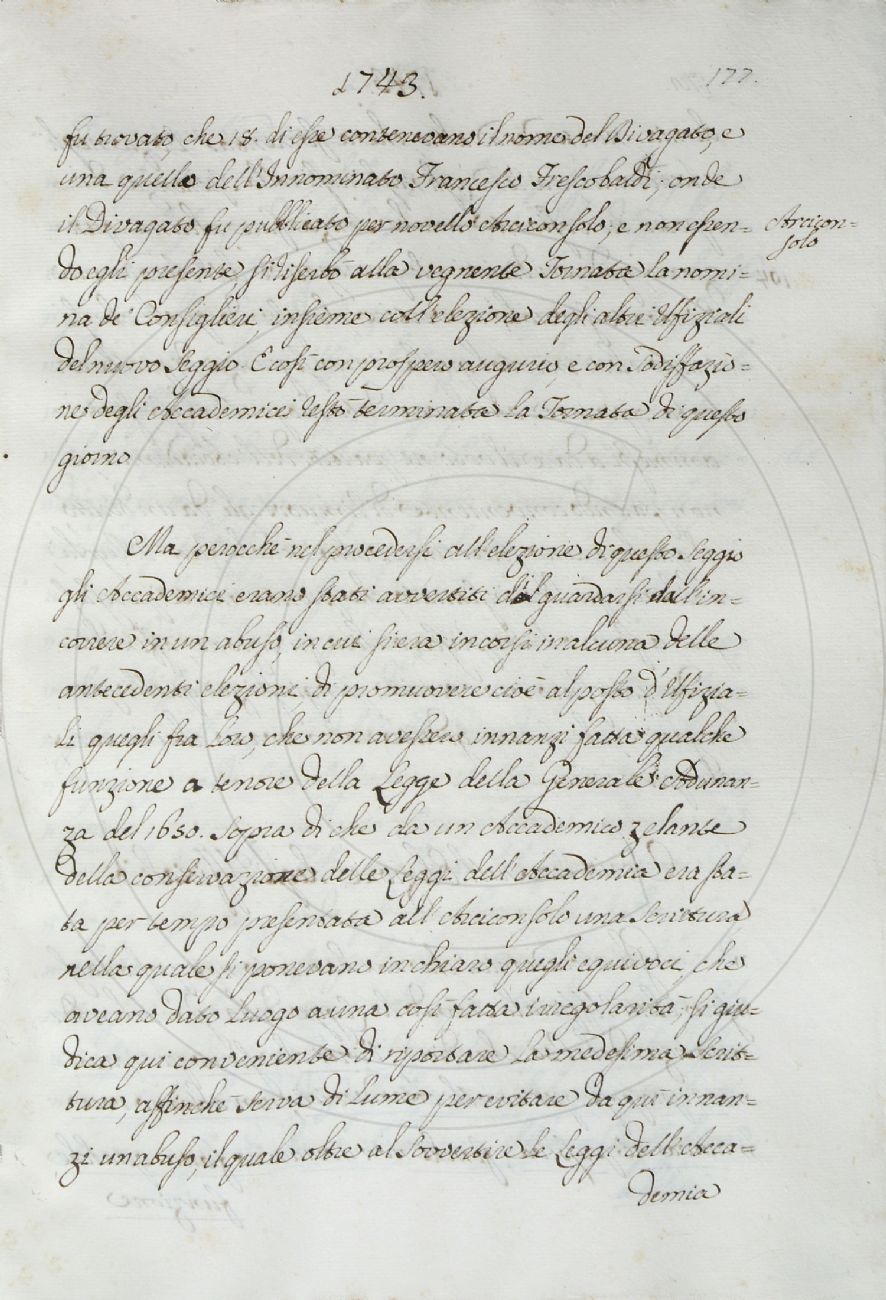 1743.
177.
fu trovato, che 18. di esse contenevano il nome del Divagato, e
una quello dell'Innominato Francesco Frescobaldi; onde
il Divagato fu pubblicato per novello Arciconsolo; e non essen=
do egli presente, si riserbò alla vegnente Tornata la nomi=
na de' Consiglieri, insieme coll'elezione degli altri Ufiziali
del nuovo Seggio. E così con prospero augurio, e con sodisfazio=
ne degli Accademici restò terminata la Tornata di questo
giorno
Arcicon=
solo
Ma perocchè nel procedersi all'elezione di questo Seggio
gli Accademici erano stati avvertiti di guardarsi dall'in=
correre in un abuso, in cui si era incorsi in alcuna delle
antecedenti elezioni, di promuovere cioè al posto d'Ufizia=
li quegli fra loro, che non avessero innanzi fatta qualche
funzione a tenore della Legge della Generale Adunan=
za del 1650. Sopra di che da un Accademico zelante
della conservazione delle Leggi dell'Accademia era sta=
ta per tempo presentata all'Arciconsolo una Scrittura
nella quale si ponevano in chiaro quegli equivoci, che
aveano dato luogo a una così fatta irregolarità; si giu=
dica qui conveniente di riportare la medesima Scrit=
tura, affinchè serva di lume per evitare da quì innan=
zi un abuso, il quale oltre al sovvertire le Leggi dell'Acca=
demia